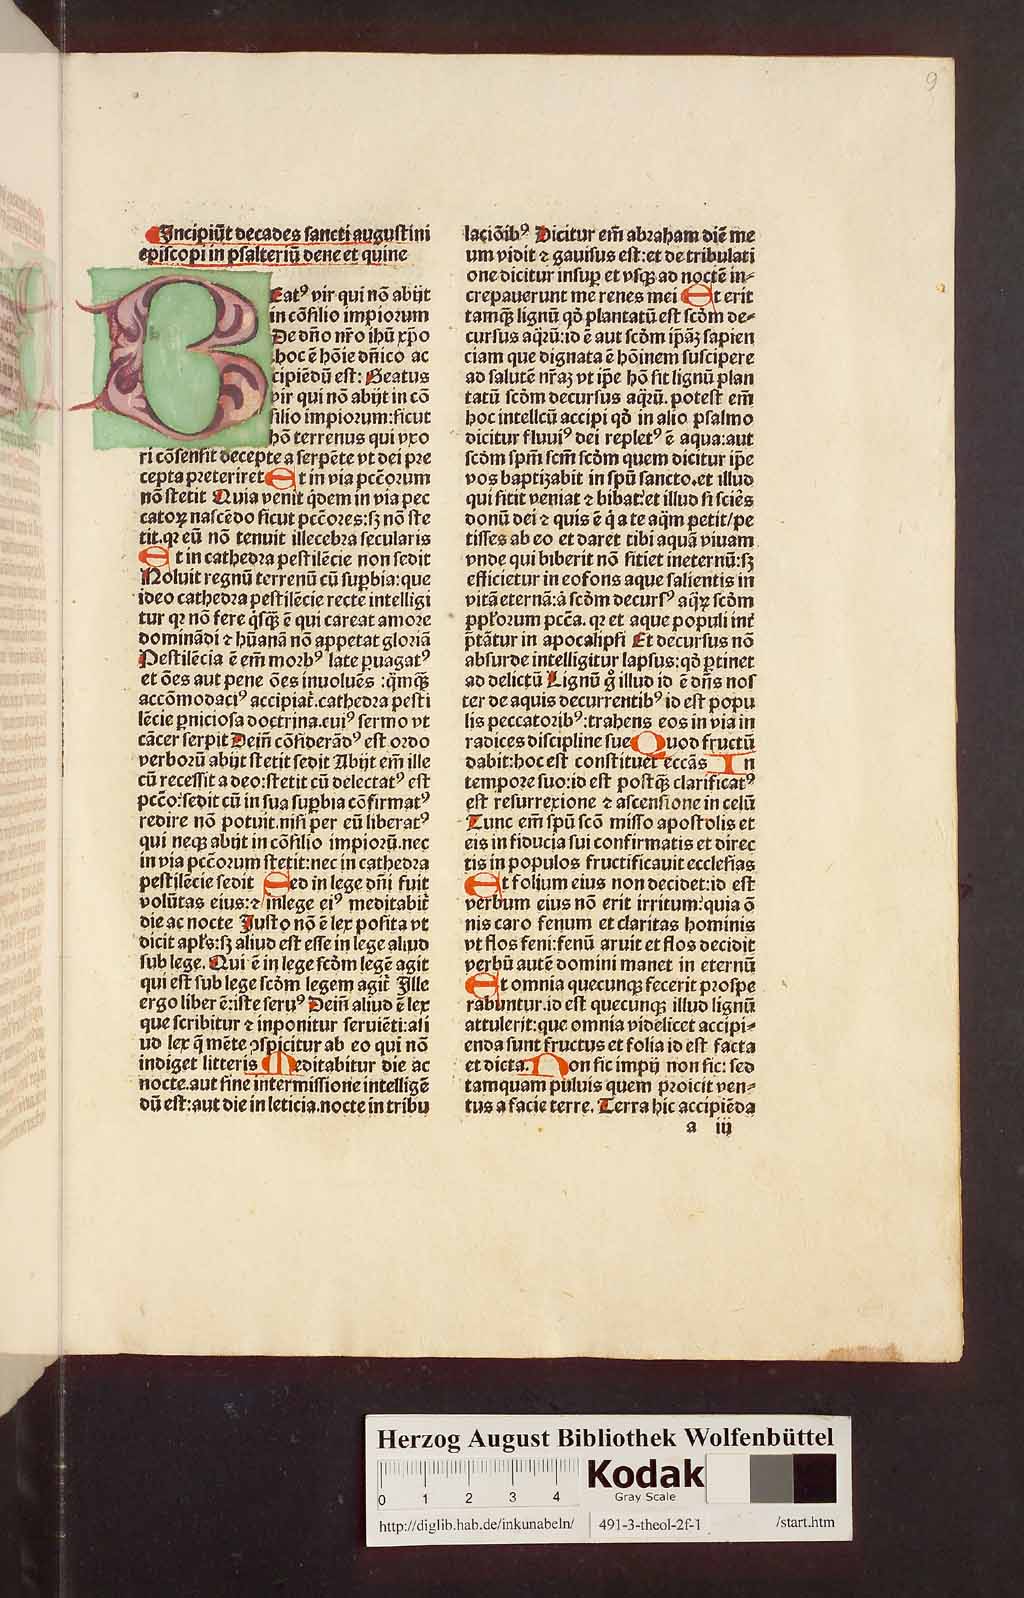 9
Incipiūt decades sancti augustini
episcopi in psalteriū dene et quine
Beatꝰ vir qui nō abijt
in cōsilio impiorum
De dn̄o nr̄o ihū xp̄o
hoc ē hōie dn̄ico ac
cipiēdū est: Beatus
vir qui nō abijt in cō
silio impiorum: sicut
hō terrenus qui vxo
ri cōsensit decepte a serpēte vt dei pre
cepta preteriret Et in via pcc̄orum
nō stetit Quia venit q̄dem in via pec
catoꝝ nascēdo sicut pcc̄ores: sꝫ nō ste
tit. qꝛ eū nō tenuit illecebra secularis
Et in cathedra pestilēcie non sedit
Noluit regnū terrenū cū sup̄bia: que
ideo cathedra pestilēcie recte intelligi
tur qꝛ nō fere q̄sqꝫ ē qui careat amore
dominādi ⁊ hūanā nō appetat gloriā
Pestilēcia ē em̄ morbꝰ late ꝑuagatꝰ
et ōes aut pene ōes inuoluēs: q̄mqꝫ
accōmodaciꝰ accipiat̄. cathedra pesti
lēcie ꝑniciosa doctrina. cuiꝰ sermo vt
cācer serpit Dein̄ cōsiderādꝰ est ordo
verborū abijt stetit sedit Abijt em̄ ille
cū recessit a deo: stetit cū delectatꝰ est
pcc̄o: sedit cū in sua sup̄bia cōfirmatꝰ
redire nō potuit. nisi per eū liberatꝰ
qui neqꝫ abijt in cōsilio impiorū. nec
in via pcc̄orum stetit: nec in cathedra
pestilēcie sedit Sed in lege dn̄i fuit
volūtas eius: ⁊ in lege eiꝰ meditabit̄
die ac nocte Justo nō ē lex posita vt
dicit apl̄s: sꝫ aliud est esse in lege aliud
sub lege. Qui ē in lege scd̄m legē agit
qui est sub lege scd̄m legem agit̄ Ille
ergo liber ē: iste seruꝰ Dein̄ aliud ē lex
que scribitur ⁊ inponitur seruiēti: ali
ud lex q̄ mēte ꝯspicitur ab eo qui nō
indiget litteris Meditabitur die ac
nocte. aut sine intermissione intelligē
dū est: aut die in leticia. nocte in tribu
laciōibꝰ Dicitur em̄ abraham diē me
um vidit ⁊ gauisus est: et de tribulati
one dicitur insup̄ et vsqꝫ ad noctē in-
crepauerunt me renes mei Et erit
tamqꝫ lignū qd̄ plantatū est scd̄m de-
cursus aq̄rū: id ē aut scd̄m ip̄aꝫ sapien
ciam que dignata ē hōinem suscipere
ad salutē nr̄aꝫ vt ip̄e hō sit lignū plan
tatū scd̄m decursus aq̄rū. potest em̄
hoc intellcū accipi qd̄ in alio psalmo
dicitur fluuiꝰ dei repletꝰ ē aqua: aut
scd̄m sp̄m scm̄ scd̄m quem dicitur ip̄e
vos baptizabit in sp̄u sancto. et illud
qui sitit veniat ⁊ bibat: et illud si sciēs
donū dei ⁊ quis ē q̄ a te aq̄m petit/ pe
tisses ab eo et daret tibi aquā viuam
vnde qui biberit nō sitiet ineternū: sꝫ
efficietur in eo fons aque salientis in
vitā eternā: a scd̄m decursꝰ aq̄ꝝ scd̄m
ppl̄orum pcc̄a. qꝛ et aque populi int̄
p̄tātur in apocalipsi Et decursus nō
absurde intelligitur lapsus: qd̄ ꝑtinet
ad delictū Lignū g̊ illud id ē dn̄s nos
ter de aquis decurrentibꝰ id est popu
lis peccatoribꝰ: trahens eos in via in
radices discipline sue Quod fructū
dabit: hoc est constituet eccās In
tempore suo: id est postqꝫ clarificatꝰ
est resurrexione ⁊ ascensione in celū
Tunc em̄ sp̄u scō misso apostolis et
eis in fiducia sui confirmatis et direc
tis in populos fructificauit ecclesias
Et folium eius non decidet: id est
verbum eius nō erit irritum: quia ō
nis caro fenum et claritas hominis
vt flos feni: fenū aruit et flos decidit
verbū autē domini manet in eternū
Et omnia quecunqꝫ fecerit prospe
rabuntur. id est quecunqꝫ illud lignū
attulerit: que omnia videlicet accipi-
enda sunt fructus et folia id est facta
et dicta. Non sic impij non sic: sed
tamquam puluis quem proicit ven-
tus a facie terre. Terra hic accipiēda
a iij
Herzog August Bibliothek Wolfenbüttel
0 1 2 3 4
Kodak
Gray Scale
http://diglib.hab.de/inkunabeln/ 491-3-theol-2f-1 /start.htm